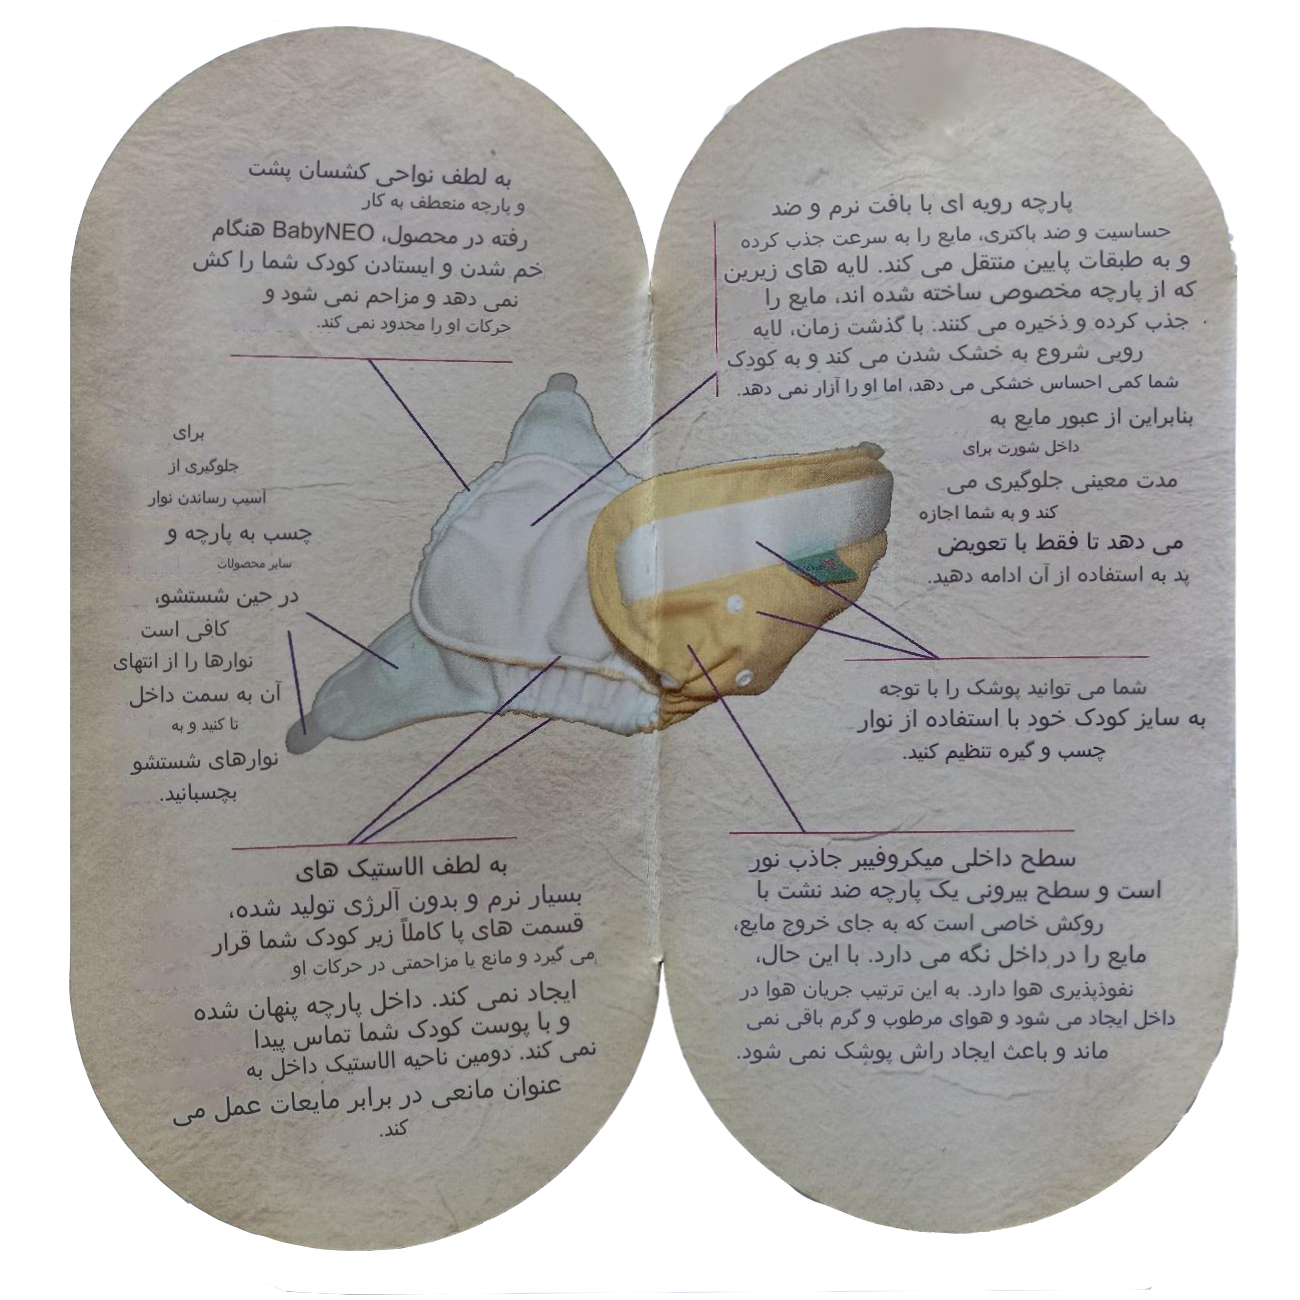 به لطف نواحی کشسان پشت
و پارچه منعطف به کار
رفته در محصول، BabyNEO هنگام
خم شدن و ایستادن کودک شما را کش
نمی دهد و مزاحم نمی شود و
حرکات او را محدود نمی کند.
برای
جلوگیری از
آسیب رساندن نوار
چسب به پارچه و
سایر محصولات
در حین شستشو،
کافی است
نوارها را از انتهای
آن به سمت داخل
تا کنید و به
نوارهای شستشو
بچسبانید.
به لطف الاستیک های
بسیار نرم و بدون آلرژی تولید شده،
قسمت های پا کاملاً زیر کودک شما قرار
می گیرد و مانع یا مزاحمتی در حرکات او
ایجاد نمی کند. داخل پارچه پنهان شده
و با پوست کودک شما تماس پیدا
نمی کند. دومین ناحیه الاستیک داخل به
عنوان مانعی در برابر مایعات عمل می
کند.
پارچه رویه ای با بافت نرم و ضد
حساسیت و ضد باکتری، مایع را به سرعت جذب کرده
و به طبقات پایین منتقل می کند. لایه های زیرین
که از پارچه مخصوص ساخته شده اند، مایع را
جذب کرده و ذخیره می کنند. با گذشت زمان، لایه
رویی شروع به خشک شدن می کند و به کودک
شما کمی احساس خشکی می دهد، اما او را آزار نمی دهد.
بنابراین از عبور مایع به
داخل شورت برای
مدت معینی جلوگیری می
کند و به شما اجازه
می دهد تا فقط با تعویض
پد به استفاده از آن ادامه دهید.
شما می توانید پوشک را با توجه
به سایز کودک خود با استفاده از نوار
چسب و گیره تنظیم کنید.
سطح داخلی میکروفیبر جاذب نور
است و سطح بیرونی یک پارچه ضد نشت با
روکش خاصی است که به جای خروج مایع،
مایع را در داخل نگه می دارد. با این حال،
نفوذپذیری هوا دارد. به این ترتیب جریان هوا در
داخل ایجاد می شود و هوای مرطوب و گرم باقی نمی
ماند و باعث ایجاد راش پوشک نمی شود.